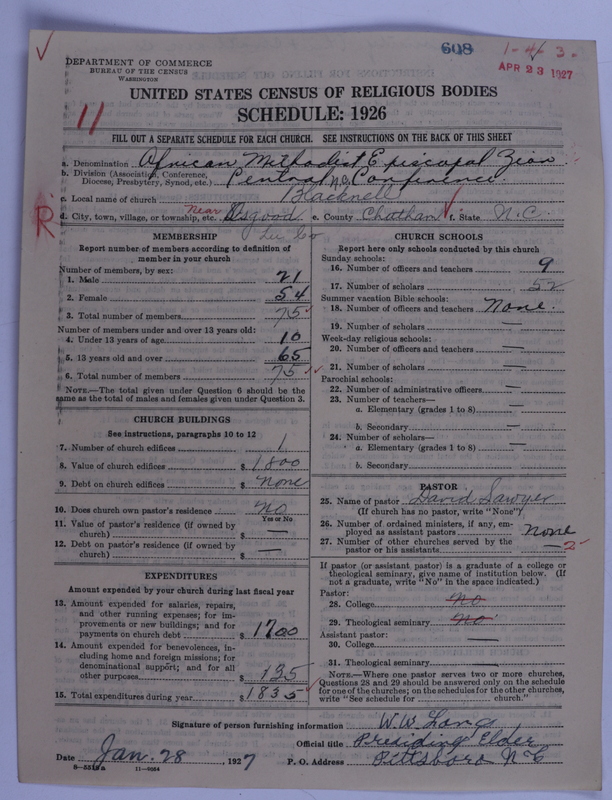 608
1-4 3.
APR 23 1927
DEPARTMENT OF COMMERCE
BUREAU OF THE CENSUS
WASHINGTON
UNITED STATES CENSUS OF RELIGIOUS BODIES
SCHEDULE: 1926
11
FILL OUT A SEPARATE SCHEDULE FOR EACH CHURCH. SEE INSTRUCTIONS ON THE BACK OF THIS SHEET
a. Denomination African Methodist Episcopal Zion
b. Division (Association, Conference, Diocese, Presbytery, Synod, etc.) Central N.C. Conference
c. Local name of church Blacknell
d. City, town, village, or township, etc. Near Osgood e. County Chatham f. State N.C.
R
Lee Co
MEMBERSHIP
Report number of members according to definition of
member in your church
Number of members, by sex:
1. Male 21
2. Female 54
3. Total number of members 75
Number of members under and over 13 years old:
4. Under 13 years of age 10
5. 13 years old and over 65
6. Total number of members 75
NOTE.—The total given under Question 6 should be the
same as the total of males and females given under Question 3.
CHURCH BUILDINGS
See instructions, paragraphs 10 to 12
7. Number of church edifices 1
8. Value of church edifices $ 1800
9. Debt on church edifices $ None
10. Does church own pastor's residence No
Yes or No
11. Value of pastor's residence (if owned by
church) $ —
12. Debt on pastor's residence (if owned by
church) $ —
EXPENDITURES
Amount expended by your church during last fiscal year
13. Amount expended for salaries, repairs,
and other running expenses; for im-
provements or new buildings; and for
payments on church debt $ 1700
14. Amount expended for benevolences, in-
cluding home and foreign missions; for
denominational support; and for all
other purposes $ 135
15. Total expenditures during year $ 1835
CHURCH SCHOOLS
Report here only schools conducted by this church
Sunday schools:
16. Number of officers and teachers 9
17. Number of scholars 52
Summer vacation Bible schools:
18. Number of officers and teachers None.
19. Number of scholars —
Week-day religious schools:
20. Number of officers and teachers —
21. Number of scholars —
Parochial schools:
22. Number of administrative officers —
23. Number of teachers—
a. Elementary (grades 1 to 8) —
b. Secondary —
24. Number of scholars—
a. Elementary (grades 1 to 8) —
b. Secondary —
PASTOR
25. Name of pastor David Sawyer
(If church has no pastor, write "None")
26. Number of ordained ministers, if any, em-
ployed as assistant pastors None
27. Number of other churches served by the
pastor or his assistants — 2
If pastor (or assistant pastor) is a graduate of a college or
theological seminary, give name of institution below. (If
not a graduate, write "No" in the space indicated.)
Pastor:
28. College No
29. Theological seminary No
Assistant pastor:
30. College —
31. Theological seminary —
NOTE.—Where one pastor serves two or more churches,
Questions 28 and 29 should be answered only on the schedule
for one of the churches; on the schedules for the other churches,
write "See schedule for church."
Signature of person furnishing information W.W. Long
Official title Presiding Elder
Date Jan. 28, 1927 P. O. Address Pittsboro N C
8—5518a 11—9324